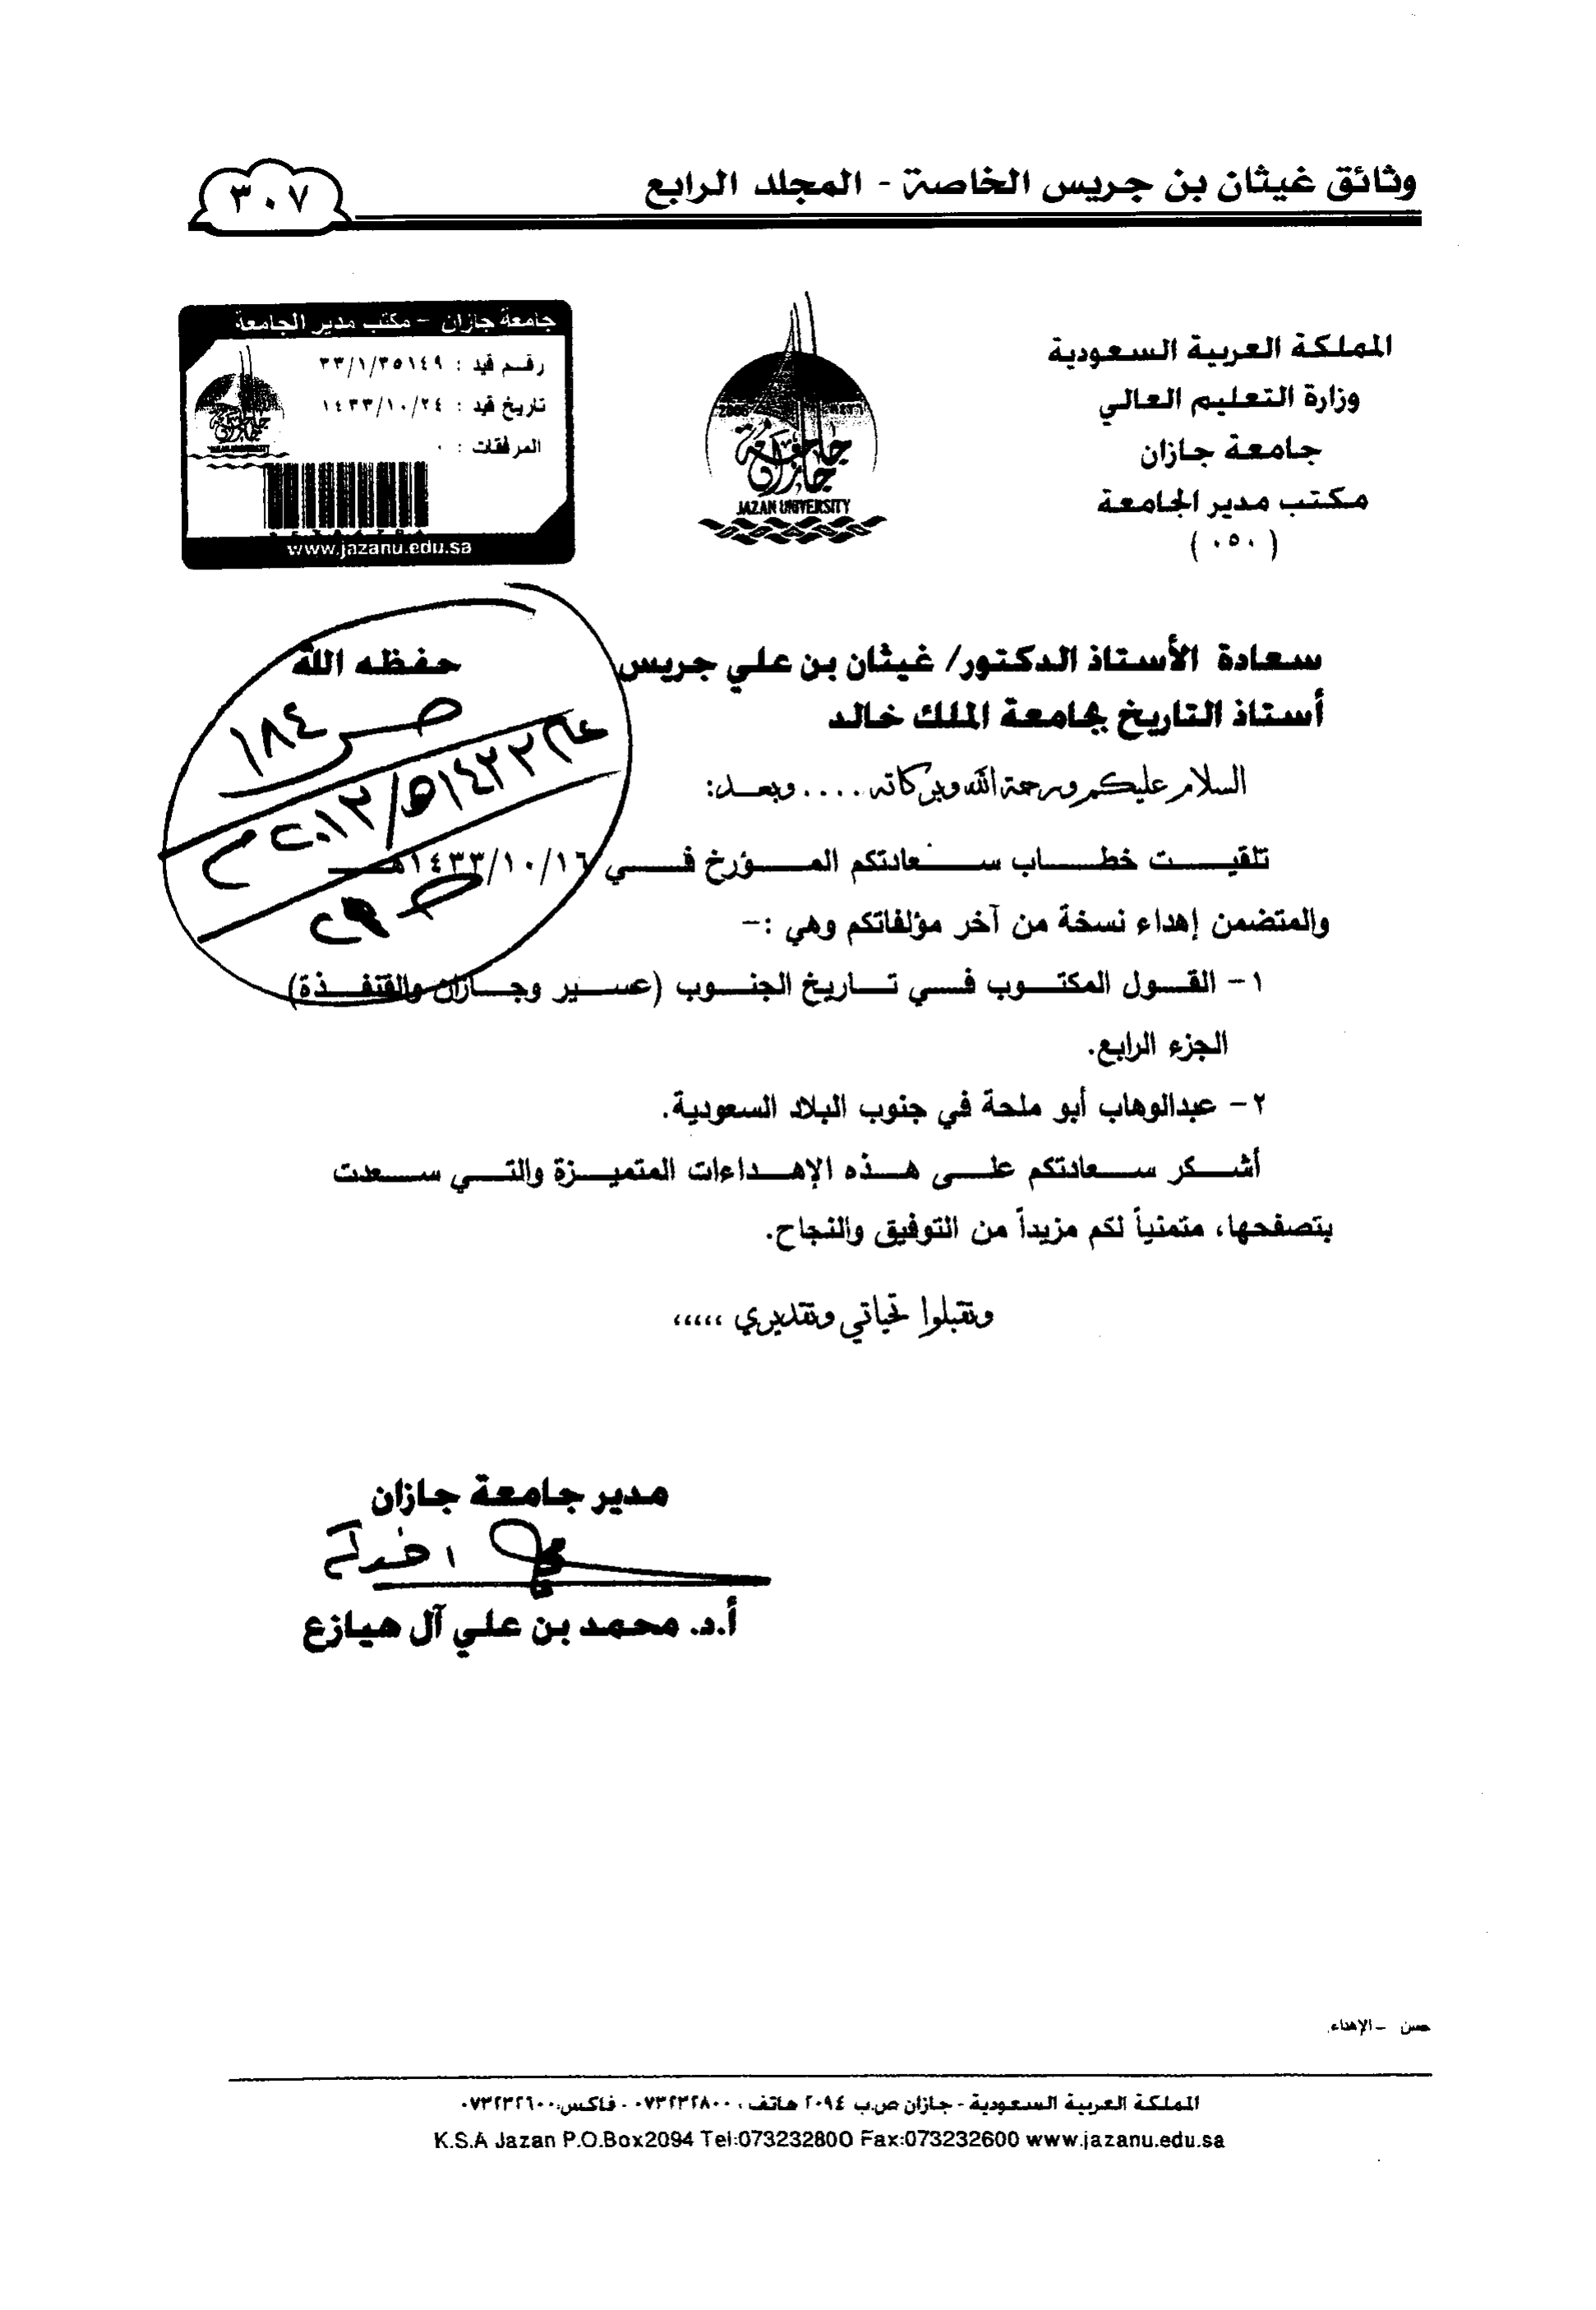 وثائق غيثان بن جريس الخاصة - المجلد الرابع
٣٠٧
المملكة العربية السعودية
وزارة التعليم العالي
جامعة جازان
مكتب مدير الجامعة
( ٠٥٠ )
جامعة جازان
JAZAN UNIVERSITY
جامعة جازان - مكتب مدير الجامعة
رقم قيد : ٣٣/١/٣٥١٤٩
تاريخ قيد : ١٤٣٣/١٠/٢٤
المرفقات : ٠
www.jazanu.edu.sa
سعادة الأستاذ الدكتور/ غيثان بن علي جريس حفظه الله
أستاذ التاريخ بجامعة الملك خالد
ص ١٨٤
عام ١٤٣٣هـ/٢٠١٢م
السلام عليكم ورحمة الله وبركاته .... وبعد:
تلقيت خطاب سعادتكم المؤرخ في ١٤٣٣/١٠/١٦هـ
والمتضمن إهداء نسخة من آخر مؤلفاتكم وهي :-
١- القول المكتوب في تاريخ الجنوب (عسير وجازان والقنفذة)
الجزء الرابع.
٢- عبدالوهاب أبو ملحة في جنوب البلاد السعودية.
أشكر سعادتكم على هذه الإهداءات المتميزة والتي سعدت
بتصفحها، متمنياً لكم مزيداً من التوفيق والنجاح.
وتقبلوا تحياتي وتقديري ،،،،،
مدير جامعة جازان
أ.د. محمد بن علي آل هيازع
حسن - الإهداء
المملكة العربية السعودية - جازان ص.ب ٢٠٩٤ هاتف ، ٠٧٣٢٣٢٨٠٠ - فاكس:٠٧٣٢٣٢٦٠٠
K.S.A Jazan P.O.Box2094 Tel:073232800 Fax:073232600 www.jazanu.edu.sa